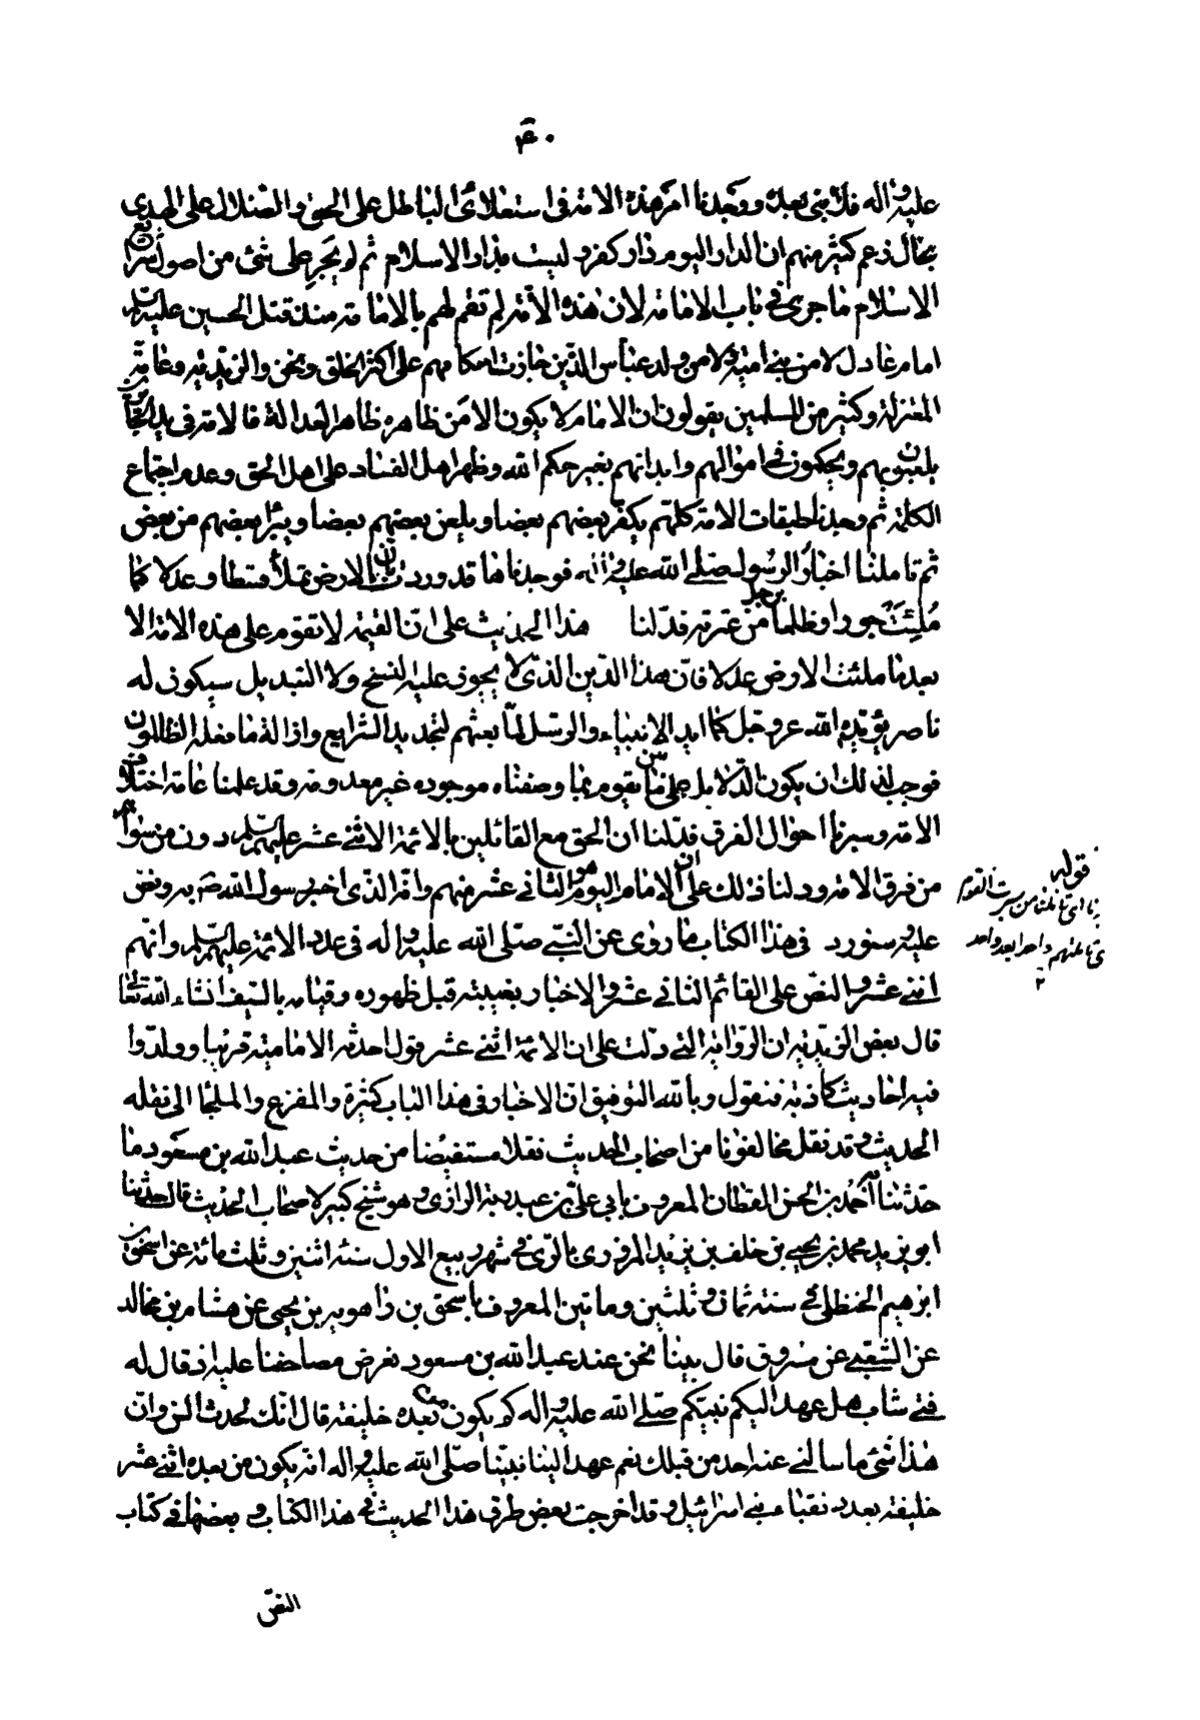 ۴۰
عليه واله فلا نبى بعده ووجدنا امر هذه الامة فى استعلاى الباطل على الحق والضلال على الهدى
بحال زعم كثير منهم ان الدار اليوم دار كفر و ليست بدار الاسلام ثم لم يجر على شئ من اصول شرايع
الاسلام ما جرى فى باب الامامة لان هذه الامة لم تقم لهم بالامامة منذ قتل الحسين عليه السلم
امام عادل لا من بنى امية ولا من ولد عباس الذين جارت احكامهم على اكثر الخلق ونحن والزيدية وعامة
المعتزلة وكثير من المسلمين يقولون ان الامام لا يكون الا من ظاهره ظاهر العدالة فالامة فى يد الجائرين
يلعبون بهم ويحكمون فى اموالهم وابدانهم بغير حكم الله وظهر اهل الفساد على اهل الحق وعدم اجتماع
الكلمة ثم وجدنا طبقات الامة كلهم يكفر بعضهم بعضا ويلعن بعضهم بعضا ويبرأ بعضهم من بعض
ثم تاملنا اخبار الرسول صلى الله عليه واله فوجدناها قد وردت بان الارض تملأ قسطا وعدلا كما
ملئت جورا وظلما برجل من عترته فدلنا هذا الحديث على ان القيمة لا تقوم على هذه الامة الا
بعد ما ملئت الارض عدلا فان هذا الدين الذى لا يجوز عليه النسخ ولا التبديل سيكون له
ناصر يؤيده الله عز وجل كما ايد الانبياء والرسل لما بعثهم لتجديد الشرايع وازالة ما فعله الظالمون
فوجب لذلك ان يكون الدلايل على من يقوم بما وصفناه موجوده غير معدومة وقد علمنا عامة اختلاف
الامة وسبرنا احوال الفرق فدلنا ان الحق مع القائلين بالائمة الاثنى عشر عليهم السلم دون من سواهم
من فرق الامة ودلنا ذلك على ان الامام اليوم هو الثانى عشر منهم وانه الذى اخبر رسول الله ص به ونص
عليه وسنورد فى هذا الكتاب ما روى عن النبى صلى الله عليه واله فى عدد الائمة عليهم السلم وانهم
اثنى عشر والنص على القائم الثانى عشر والاخبار بغيبته قبل ظهوره وقيامه بالسيف انشاء الله تعالى
قال بعض الزيدية ان الرواية التى دلت على ان الائمة اثنى عشر قول احدثه الامامية قريبا وولدوا
فيه احاديث كاذبة فنقول وبالله التوفيق ان الاخبار فى هذا الباب كثيرة والمفزع والملجا الى نقله
الحديث وقد نقل مخالفونا من اصحاب الحديث نقلا مستفيضا من حديث عبد الله بن مسعود ما
حدثنا به احمد بن الحسن القطان المعروف بابى على بن عبد ربه الرازى وهو شيخ كبير لاصحاب الحديث قال حدثنا
ابو يزيد محمد بن يحيى بن خلف بن يزيد المروزى بالرى فى شهر ربيع الاول سنة اثنين وثلث مائة عن اسحق بن
ابرهيم الحنظلى فى سنة ثمان وثلثين وماتين المعروف باسحق بن راهويه بن يحيى عن هشام بن خالد
عن الشعبى عن مسروق قال بينا نحن عند عبد الله بن مسعود نعرض مصاحفنا عليه اذ قال له
فتى شاب هل عهد اليكم نبيكم صلى الله عليه واله كم يكون من بعده خليفة قال انك لحدث السن وان
هذا شئ ما سالنى عنه احد من قبلك نعم عهد الينا نبينا صلى الله عليه واله انه يكون من بعده اثنى عشر
خليفة بعدد نقباء بنى اسرائيل وقد اخرجت بعض طرق هذا الحديث فى هذا الكتاب و بعضها فى كتاب
النص
قوله
واحدا بعد واحد